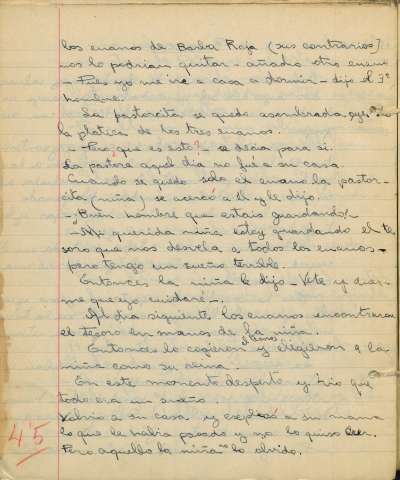 los enanos de Barba Roja (sus contrarios)
nos lo podrian quitar - añadio otro enano
- Pues yo me iré a casa a dormir - dijo el 3º
hombre.
La pastorcita se quedo asombrada oyendo
la platica de los tres enanos.
- ¿Pero que es esto? - se decia para si.
La pastora aquel dia no fué a su casa.
Cuando se quedo solo el enano la pastor-
cita (niña) se acercó a él y le dijo.
- ¿Buen hombre que estais guardando?
- Mi querida niña estoy guardando el te
soro que nos desvela a todos los enanos -
pero tengo un sueño terrible.
Entonces la niña le dijo - Vete y duer-
me que yo cuidaré -.
Al dia siguiente los enanos encontraron
el tesoro en manos de la niña.
Entonces lo cogieron y eligieron a la
niña como su reina.
En este momento despertó y vio que
todo era un sueño.
Volvio a su casa y explicó a su mama
lo que le habia pasado y no lo quiso creer.
Pero aquello la niña no lo olvido.
45